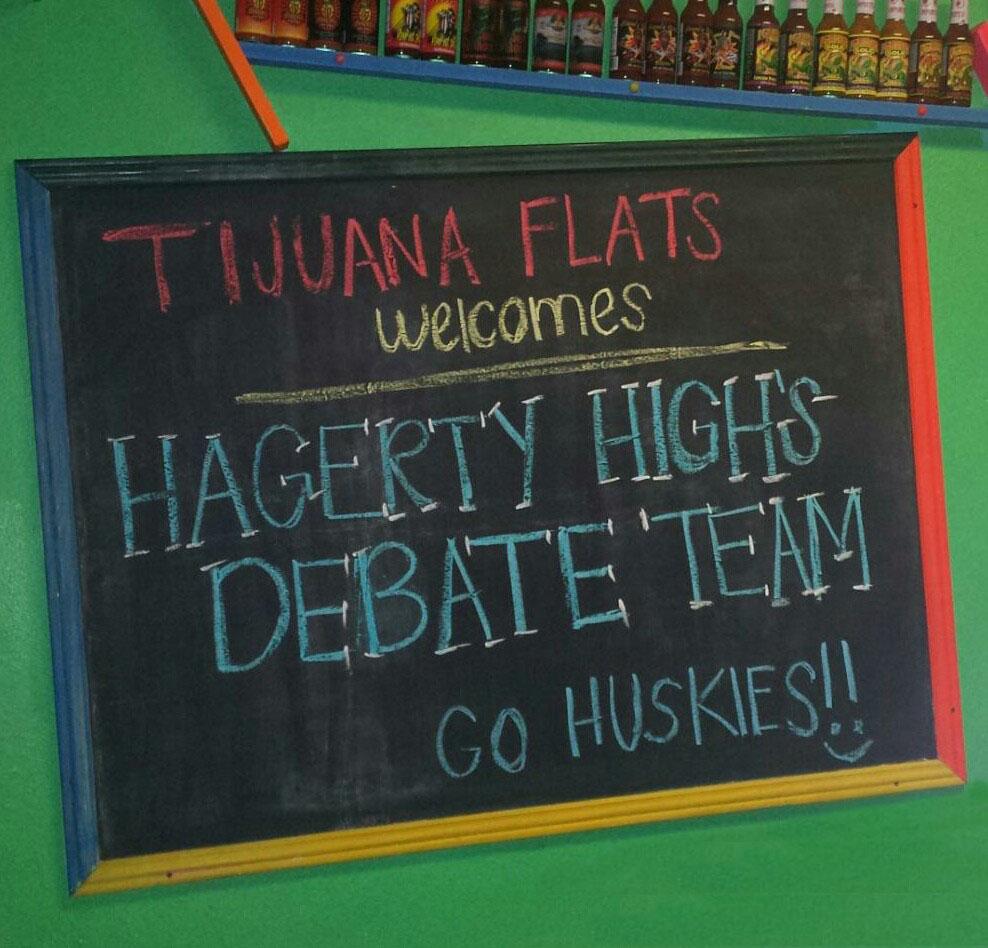 TIJUANA FLATS
welcomes
HAGERTY HIGH'S
DEBATE TEAM
GO HUSKIES!!